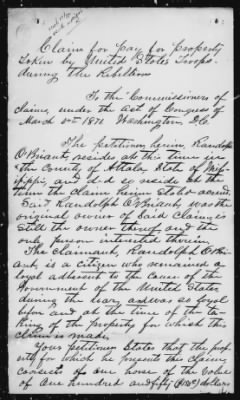 Claim for Pay for Property
Taken by United States Troops
during the Rebellion
To the Commissioners of
claims, under the act of Congress of
March 3rd 1871 Washington, D.C.
The petitioner herein, Randolph
O'Briant, resides at this time in
the County of Attala, State of Miss-
issippi, and did so reside at the
time the claim herein stated accrued.
Said Randolph O'Briant was the
original owner of said claim, is
still the owner thereof and the
only person interested therein.
The claimant, Randolph O'Bri-
ant, is a citizen who remained a
loyal adherent to the cause of the
Government of the United States
during the war, and was so loyal
before and at the time of the ta-
king of the property for which this
claim is made.
Your petitioner States that the prop-
erty for which he presents the claim,
consists of one horse of the value
of One hundred and fifty dollars